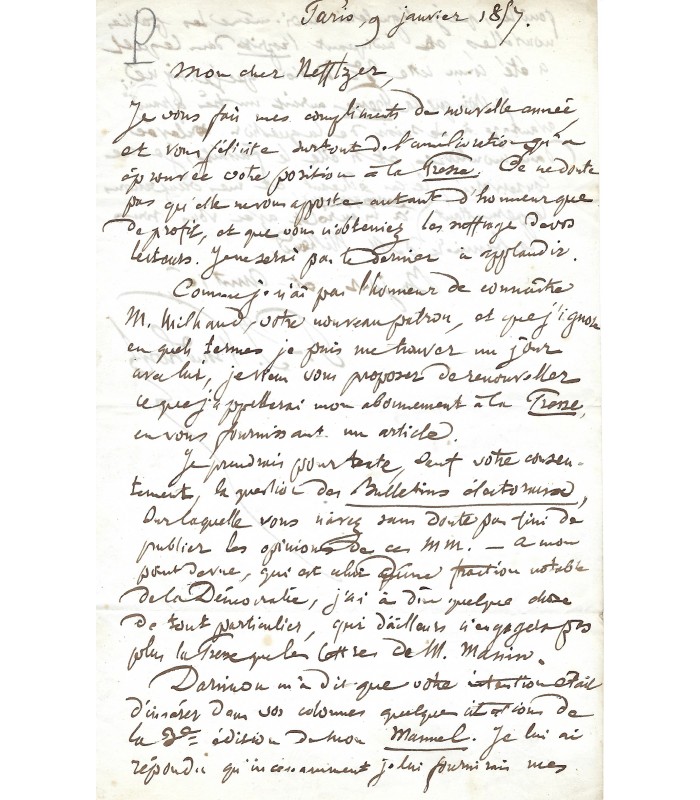 P
Paris, 9 janvier 1857.
Mon cher Nefftzer,
Je vous fais mes compliments de nouvelle année,
et vous félicite surtout de l'amélioration qu'a
éprouvée votre position à la Presse. Ce ne doute
pas qu'elle ne vous apporte autant d'honneur que
de profit, et que vous n'obteniez les suffrage de vos
lecteurs. Je ne serai pas le dernier à applaudir.
Comme je n'ai pas l'honneur de connaître
M. Milhaud, votre nouveau patron, et que j'ignore
en quels termes je puis me trouver un jour
avec lui, je viens vous proposer de renouveller
ce que j'appellerai mon abonnement à la Presse,
en vous fournissant un article.
Je prendrais pour texte, sauf votre consen-
tement, la question des Bulletins électoraux,
sur laquelle vous n'avez sans doute pas fini de
publier les opinions de ces MM. — A mon
point de vue, qui est celui d'une fraction notable
de la Démocratie, j'ai à dire quelque chose
de tout particulier, qui d'ailleurs n'engagera pas
plus la Presse que les lettres de M. Manin.
Darimon m'a dit que votre intention était
d'insérer dans vos colonnes quelques citations de
la 3e édition de mon Manuel. Je lui ai
répondu qu'incessamment je lui fournirais mes